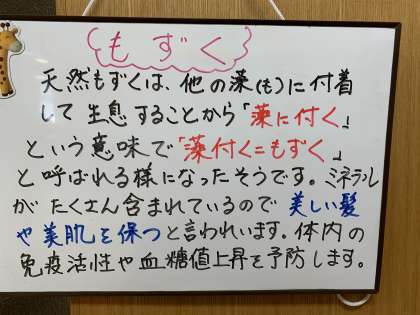 もずく
天然もずくは、他の藻(も)に付着
して生息することから「藻に付く」
という意味で「藻付く=もずく」
と呼ばれる様になったそうです。ミネラル
がたくさん含まれているので美しい髪
や美肌を保つと言われいます。体内の
免疫活性や血糖値上昇を予防します。